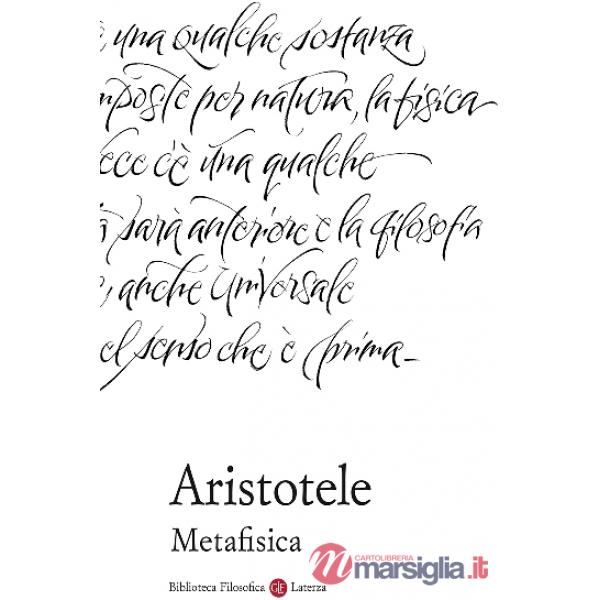 è una qualche sostanza
mposte per natura, la fisica
ece c'è una qualche
à sarà anteriore e la filosofia
o, anche universale
el senso che è prima_
Aristotele
Metafisica
CARTOLIBRERIA
m marsiglia.it
Biblioteca Filosofica GLF Laterza